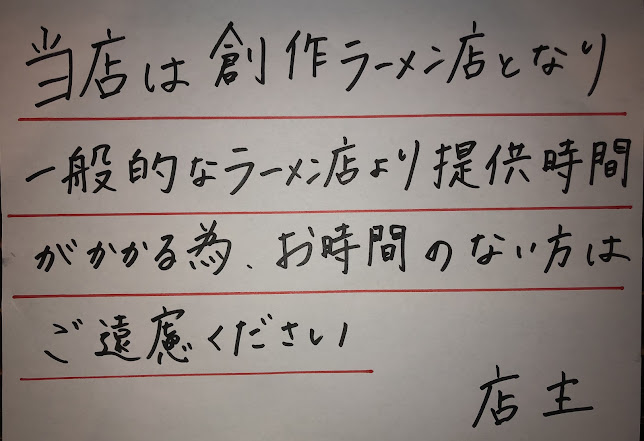 当店は創作ラーメン店となり
一般的なラーメン店より提供時間
がかかる為、お時間のない方は
ご遠慮ください
店主